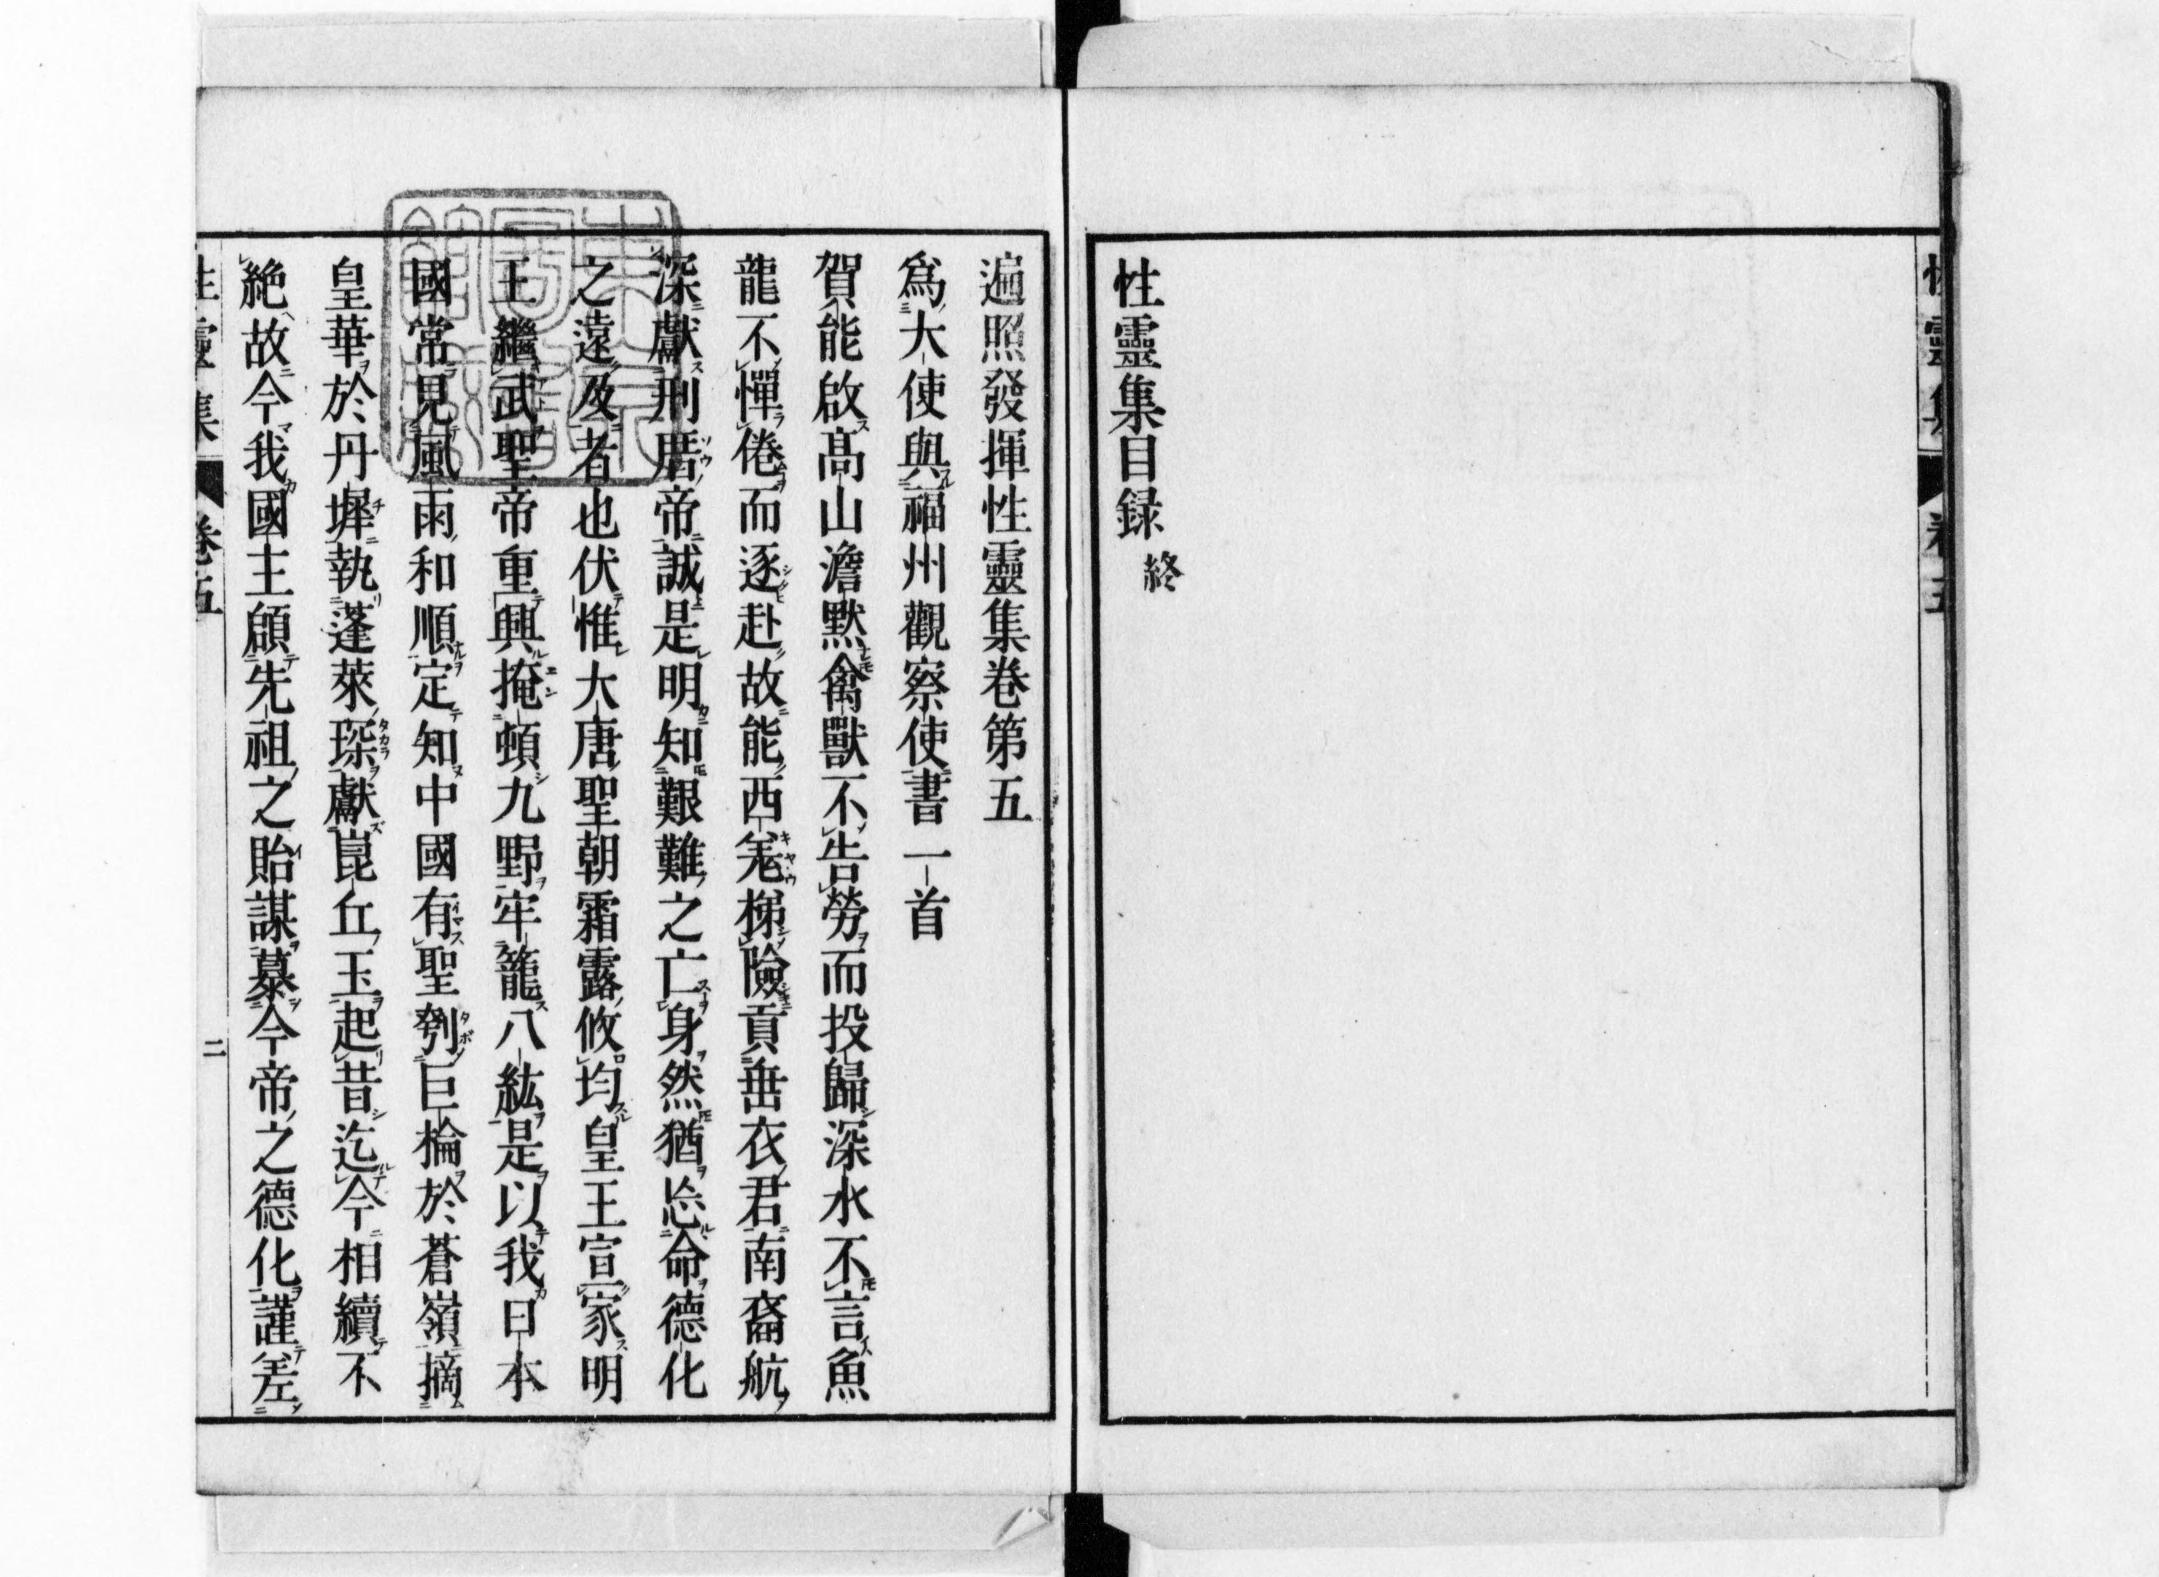 性靈集目録 終
遍照發揮性靈集卷第五
爲大使與福州觀察使書一首
賀能啟髙山澹黙禽獸不告勞而投歸深水不言魚
龍不憚倦而逐赴故能西羗梯險貢垂衣君南裔航
深獻刑厝帝誠是明知艱難之亡身然猶忘命德化
之遠及者也伏惟大唐聖朝霜露攸均皇王宣家明
王繼武聖帝重興掩頓九野牢籠八紘是以我日本
國常見風雨和順定知中國有聖刳巨棆於蒼嶺摘
皇華於丹墀執蓬萊琛獻崑丘玉起昔迄今相續不
絶故今我國主顧先祖之貽謀慕今帝之德化謹差
性靈集 卷五 二